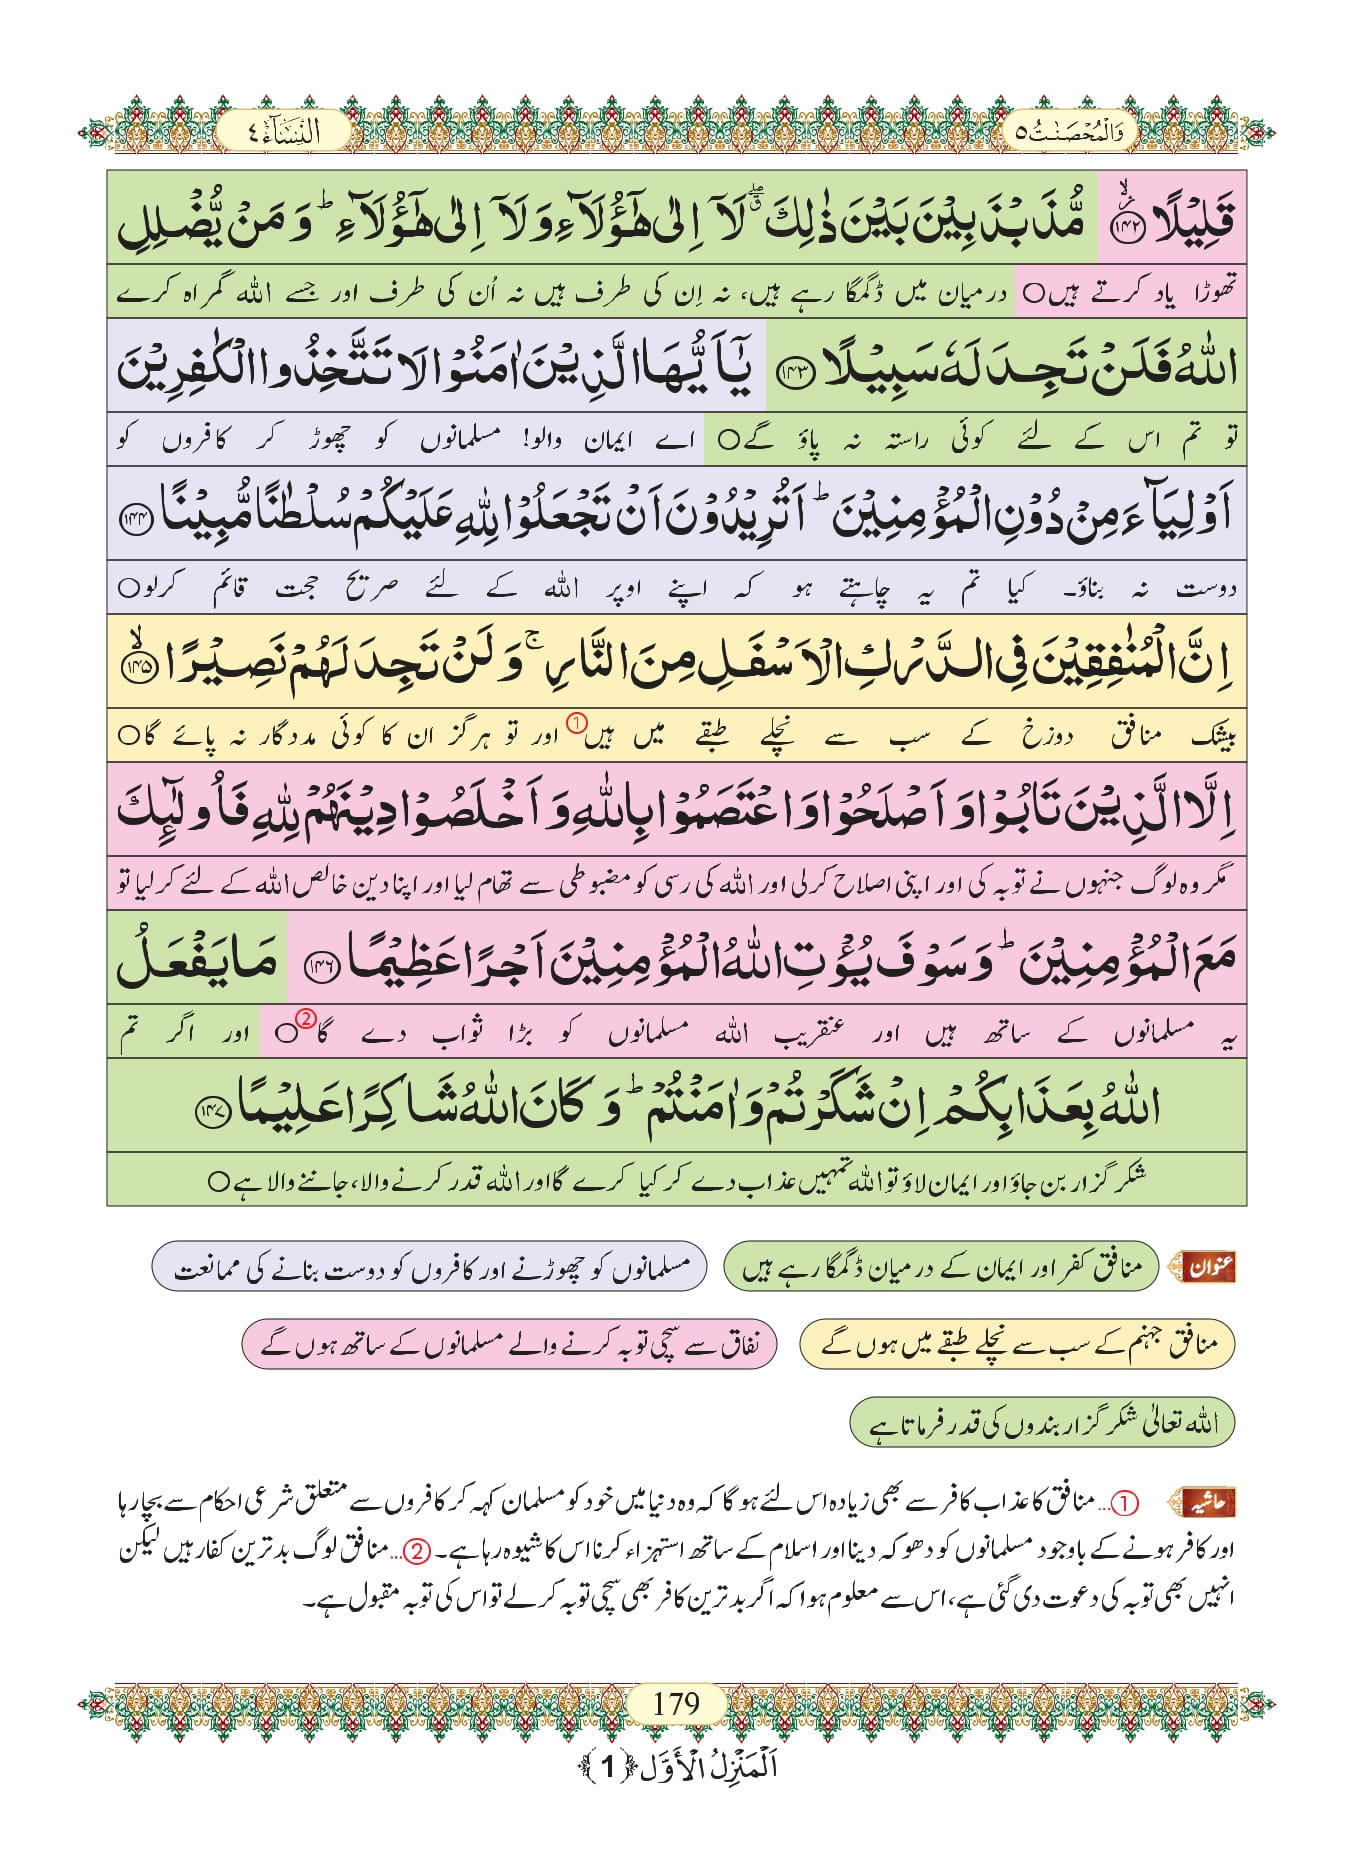 وَالْمُحْصَنٰتُ ٥
النِّسَآء ٤
قَلِیْلًا ﴿۱۴۲﴾ مُّذَبْذَبِیْنَ بَیْنَ ذٰلِكَ ۖۗ لَاۤ اِلٰی هٰۤؤُلَآءِ وَلَاۤ اِلٰی هٰۤؤُلَآءِ ؕ وَ مَنْ یُّضْلِلِ
تھوڑا یاد کرتے ہیں○ درمیان میں ڈگمگا رہے ہیں، نہ اِن کی طرف ہیں نہ اُن کی طرف اور جسے اللہ گمراہ کرے
اللّٰهُ فَلَنْ تَجِدَ لَهٗ سَبِیْلًا ﴿۱۴۳﴾ یٰۤاَیُّهَا الَّذِیْنَ اٰمَنُوْا لَا تَتَّخِذُوا الْكٰفِرِیْنَ
تو تم اس کے لئے کوئی راستہ نہ پاؤ گے○ اے ایمان والو! مسلمانوں کو چھوڑ کر کافروں کو
اَوْلِیَآءَ مِنْ دُوْنِ الْمُؤْمِنِیْنَ ؕ اَتُرِیْدُوْنَ اَنْ تَجْعَلُوْا لِلّٰهِ عَلَیْكُمْ سُلْطٰنًا مُّبِیْنًا ﴿۱۴۴﴾
دوست نہ بناؤ۔ کیا تم یہ چاہتے ہو کہ اپنے اوپر اللہ کے لئے صریح حجت قائم کرلو○
اِنَّ الْمُنٰفِقِیْنَ فِی الدَّرْكِ الْاَسْفَلِ مِنَ النَّارِ ۚ وَ لَنْ تَجِدَ لَهُمْ نَصِیْرًا ﴿۱۴۵﴾ۙ
بیشک منافق دوزخ کے سب سے نچلے طبقے میں ہیں① اور تو ہرگز ان کا کوئی مددگار نہ پائے گا○
اِلَّا الَّذِیْنَ تَابُوْا وَ اَصْلَحُوْا وَ اعْتَصَمُوْا بِاللّٰهِ وَ اَخْلَصُوْا دِیْنَهُمْ لِلّٰهِ فَاُولٰٓىٕكَ
مگر وہ لوگ جنہوں نے توبہ کی اور اپنی اصلاح کرلی اور اللہ کی رسی کو مضبوطی سے تھام لیا اور اپنا دین خالص اللہ کے لئے کرلیا تو
مَعَ الْمُؤْمِنِیْنَ ؕ وَ سَوْفَ یُؤْتِ اللّٰهُ الْمُؤْمِنِیْنَ اَجْرًا عَظِیْمًا ﴿۱۴۶﴾ مَا یَفْعَلُ
یہ مسلمانوں کے ساتھ ہیں اور عنقریب اللہ مسلمانوں کو بڑا ثواب دے گا②○ اور اگر تم
اللّٰهُ بِعَذَابِكُمْ اِنْ شَكَرْتُمْ وَ اٰمَنْتُمْ ؕ وَ كَانَ اللّٰهُ شَاكِرًا عَلِیْمًا ﴿۱۴۷﴾
شکر گزار بن جاؤ اور ایمان لاؤ تو اللہ تمہیں عذاب دے کر کیا کرے گا اور اللہ قدر کرنے والا، جاننے والا ہے○
عنوان منافق کفر اور ایمان کے درمیان ڈگمگا رہے ہیں مسلمانوں کو چھوڑنے اور کافروں کو دوست بنانے کی ممانعت
منافق جہنم کے سب سے نچلے طبقے میں ہوں گے نفاق سے سچی توبہ کرنے والے مسلمانوں کے ساتھ ہوں گے
اللہ تعالیٰ شکر گزار بندوں کی قدر فرماتا ہے
حاشیہ ①…منافق کا عذاب کافر سے بھی زیادہ اس لئے ہوگا کہ وہ دنیا میں خود کو مسلمان کہہ کر کافروں سے متعلق شرعی احکام سے بچا رہا
اور کافر ہونے کے باوجود مسلمانوں کو دھوکہ دینا اور اسلام کے ساتھ استہزاء کرنا اس کا شیوہ رہا ہے۔ ②…منافق لوگ بدترین کفار ہیں لیکن
انہیں بھی توبہ کی دعوت دی گئی ہے، اس سے معلوم ہوا کہ اگر بدترین کافر بھی سچی توبہ کرلے تو اس کی توبہ مقبول ہے۔
179
اَلْمَنْزِلُ الْأَوَّل ﴿1﴾